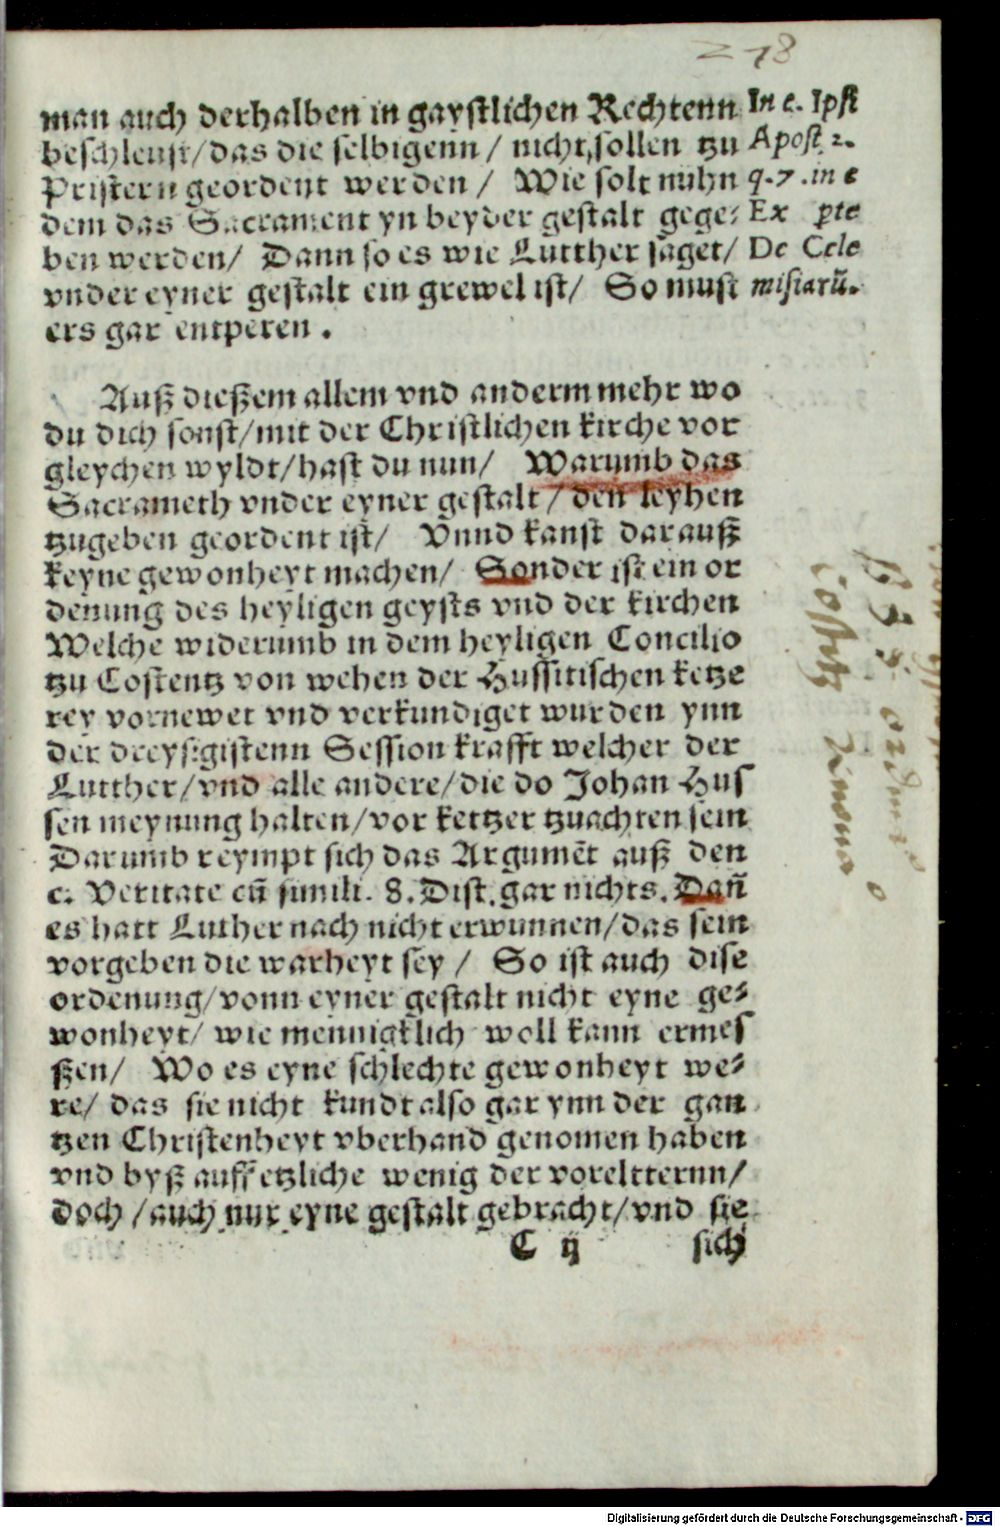 218
man auch derhalben in gaystlichen Rechtenn
beschleust/das die selbigenn/ nicht sollen tzu
Pristern geordent werden/ Wie solt nuhn
dem das Sacrament yn beyder gestalt gege⸗
ben werden/ Dann so es wie Lutther saget/
vnder eyner gestalt ein grewel ist/ So must
ers gar entperen.
In c. Ipsi
Apost. 2.
q. 7. in c
Ex pte
De Cele
misiarū.
Auß dießem allem vnd anderm mehr wo
du dich sonst/mit der Christlichen kirche vor
gleychen wyldt/hast du nun/ Warumb das
Sacrameth vnder eyner gestalt/den leyhen
tzugeben geordent ist/ Vnnd kanst darauß
keyne gewonheyt machen/ Sonder ist ein or
denung des heyligen geysts vnd der kirchen
Welche widerumb in dem heyligen Concilio
tzu Costentz von wehen der Hussitischen ketze
rey vornewet vnd verkundiget wurden ynn
der dreysigistenn Session krafft welcher der
Lutther/vnd alle andere/die do Johan Hus
sen meynung halten/vor kettzer tzuachten sein
Darumb reympt sich das Argumēt auß den
c. Veritate cū simili. 8. Dist. gar nichts. Dañ
es hatt Luther nach nicht erwunnen/das sein
vorgeben die warheyt sey/ So ist auch dise
ordenung/vonn eyner gestalt nicht eyne ge⸗
wonheyt/ wie mennigklich woll kann ermes
ßen/ Wo es eyne schlechte gewonheyt we⸗
re/ das sie nicht kundt also gar ynn der gan
tzen Christenheyt vberhand genomen haben
vnd byß auff etzliche wenig der voreltternn/
doch/auch nur eyne gestalt gebracht/vnd sie
C ij sich
Digitalisierung gefördert durch die Deutsche Forschungsgemeinschaft - DFG